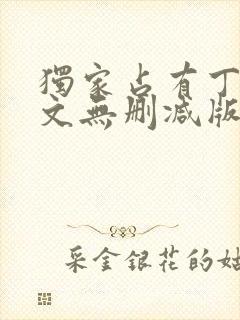 獨家占有丁
文無刪減版
采金銀花的姑